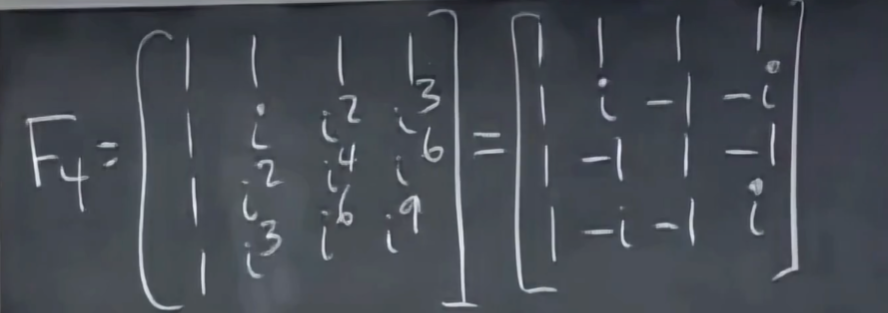 F₄ = [ 1 1 1 1 ; 1 i i² i³ ; 1 i² i⁴ i⁶ ; 1 i³ i⁶ i⁹ ] = [ 1 1 1 1 ; 1 i -1 -i ; 1 -1 1 -1 ; 1 -i -1 i ]